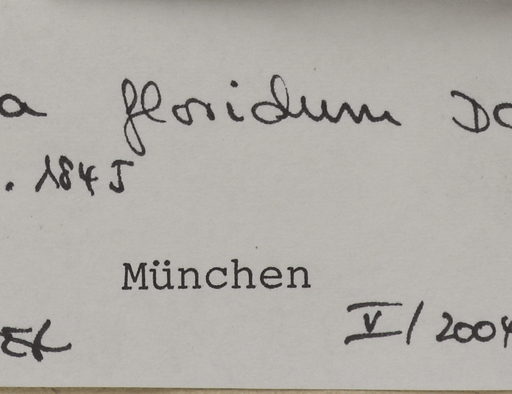 a floridum DC
. 1845
München
EK V/2004